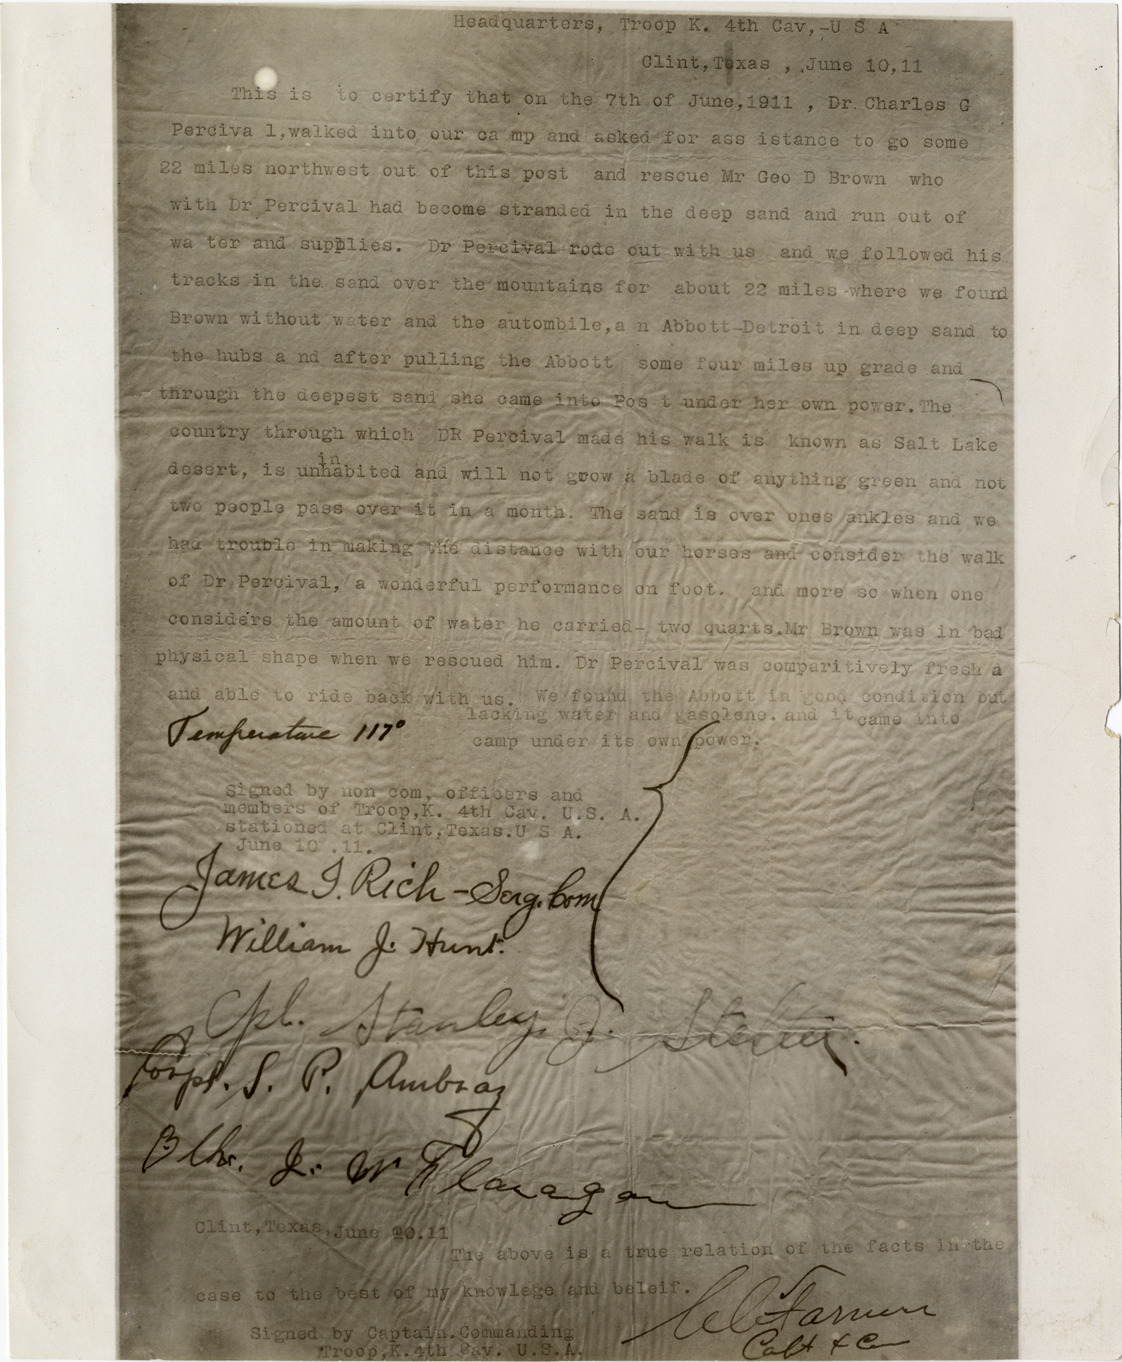 Headquarters, Troop K. 4th Cav,-U S A
Clint,Texas , June 10,11
This is to certify that on the 7th of June,1911 , Dr. Charles G
Perciva l,walked into our ca mp and asked for ass istance to go some
22 miles northwest out of this post and rescue Mr Geo D Brown who
with Dr Percival had become stranded in the deep sand and run out of
wa ter and supplies. Dr Percival rode out with us and we followed his
tracks in the sand over the mountains for about 22 miles where we found
Brown without water and the autombile,a n Abbott-Detroit in deep sand to
the hubs a nd after pulling the Abbott some four miles up grade and
through the deepest sand she came into Pos t under her own power.The
country through which DR Percival made his walk is known as Salt Lake
in
desert, is unhabited and will not grow a blade of anything green and not
two people pass over it in a month. The sand is over ones ankles and we
had trouble in making the distance with our horses and consider the walk
of Dr Percival, a wonderful performance on foot. and more so when one
considers the amount of water he carried- two quarts.Mr Brown was in bad
physical shape when we rescued him. Dr Percival was comparitively fresh a
and able to ride back with us. We found the Abbott in good condition but
lacking water and gasolene. and it came into
Temperature 117°
camp under its own power.
Signed by non com, officers and
members of Troop,K. 4th Cav. U.S. A.
stationed at Clint,Texas.U S A.
June 10 .11.
James I. Rich - Serg. Com
William J. Hunt.
Cpl. Stanley J.
Corpl. S. P. Ambroz
J. W Flanagan
Clint,Texas,June 20.11
The above is a true relation of the facts in the
case to the best of my knowlege and beleif.
Signed by Captain.Commanding
Troop,K.4th Cav. U.S.A.